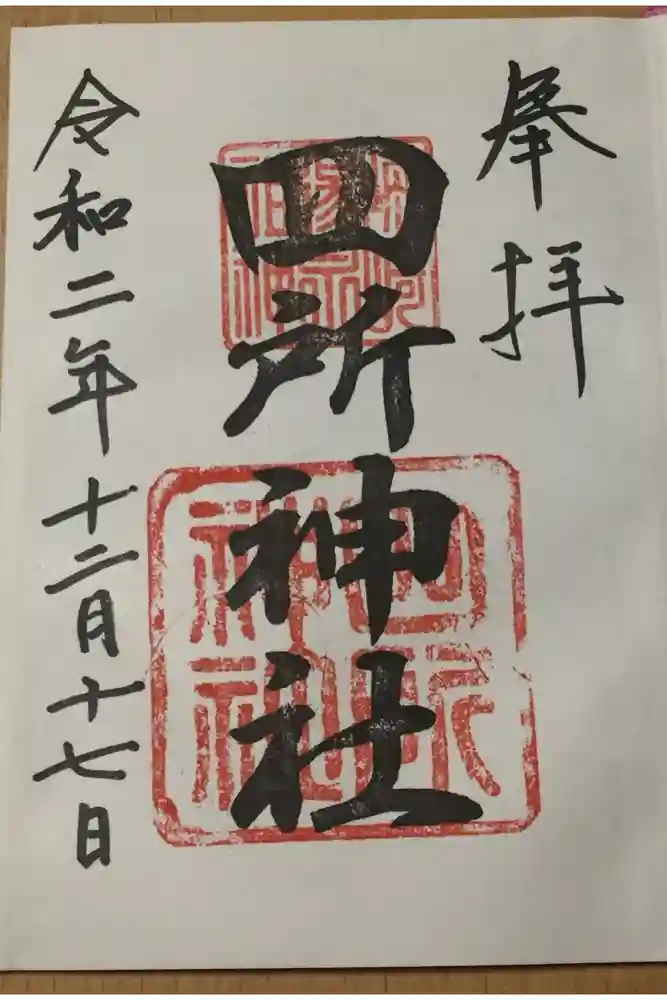 奉拝
四所神社
四所神社
令和二年十二月十七日